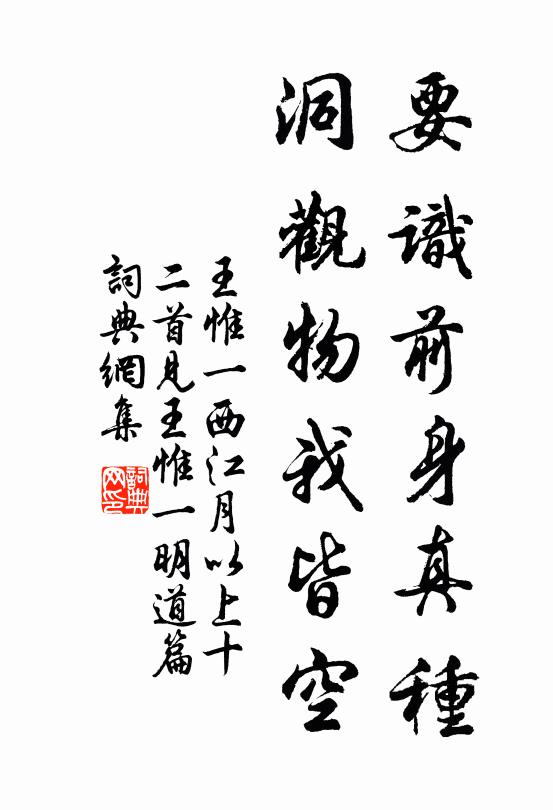 要識前身真種
洞觀物我皆空
王惟一西江月以上十
二首見王惟一明道篇
詞典網集
詞典
网印